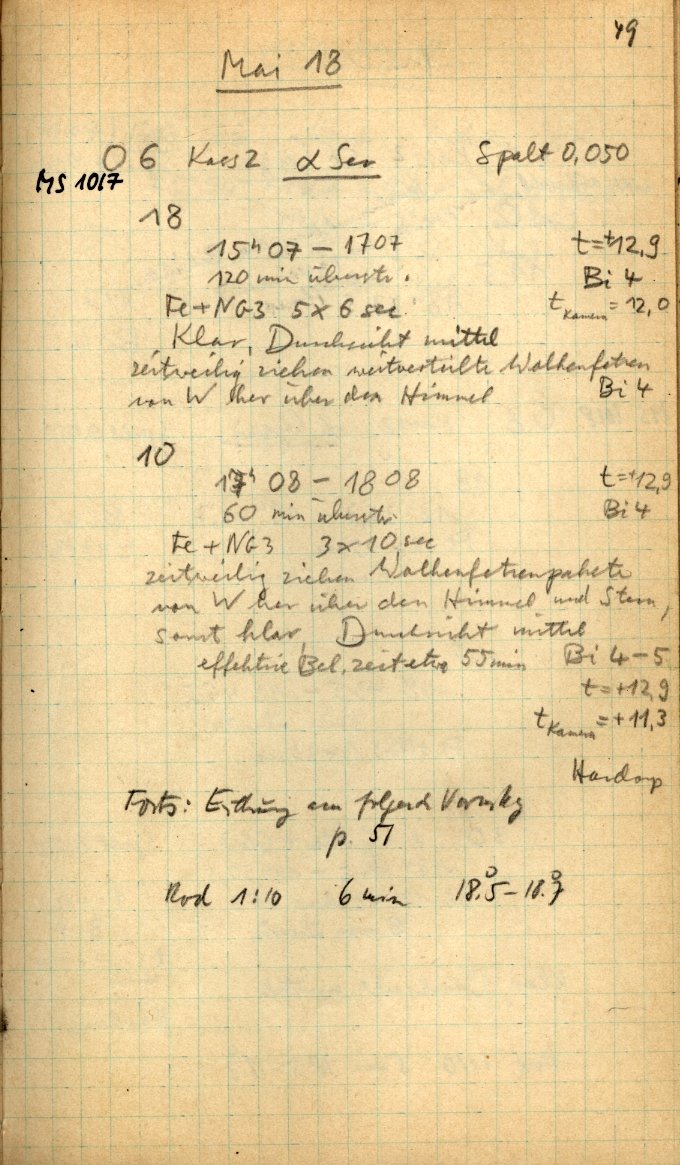 49
Mai 18
O 6 Kass 2 α Ser Spalt 0,050
MS 1017
18
15ʰ 07 – 17 07 t=+12,9
120 min überstr. Bi 4
Fe + NG3 5 x 6 sec t Kamera = 12,0
Klar, Durchsicht mittel
zeitweilig ziehen weitverteilte Wolkenfetzen
von W her über den Himmel Bi 4
10
17ʰ 08 – 18 08 t=+12,9
60 min überstr. Bi 4
Fe + NG3 3 x 10 sec
zeitweilig ziehen Wolkenfetzenpakete
von W her über den Himmel und Stern,
sonst klar, Durchsicht mittel
effektive Bel. zeit etwa 55 min Bi 4 – 5
t = +12,9
t Kamera = +11,3
Hardorp
Forts: am
p. 51
Rod 1:10 6 min 18.°5 – 18.°7